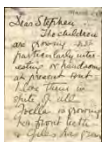 Dear Stephen
The children
are growing not
particularly inter
esting or handsome
at present but
I love them in
spite of this
growing
her front teeth